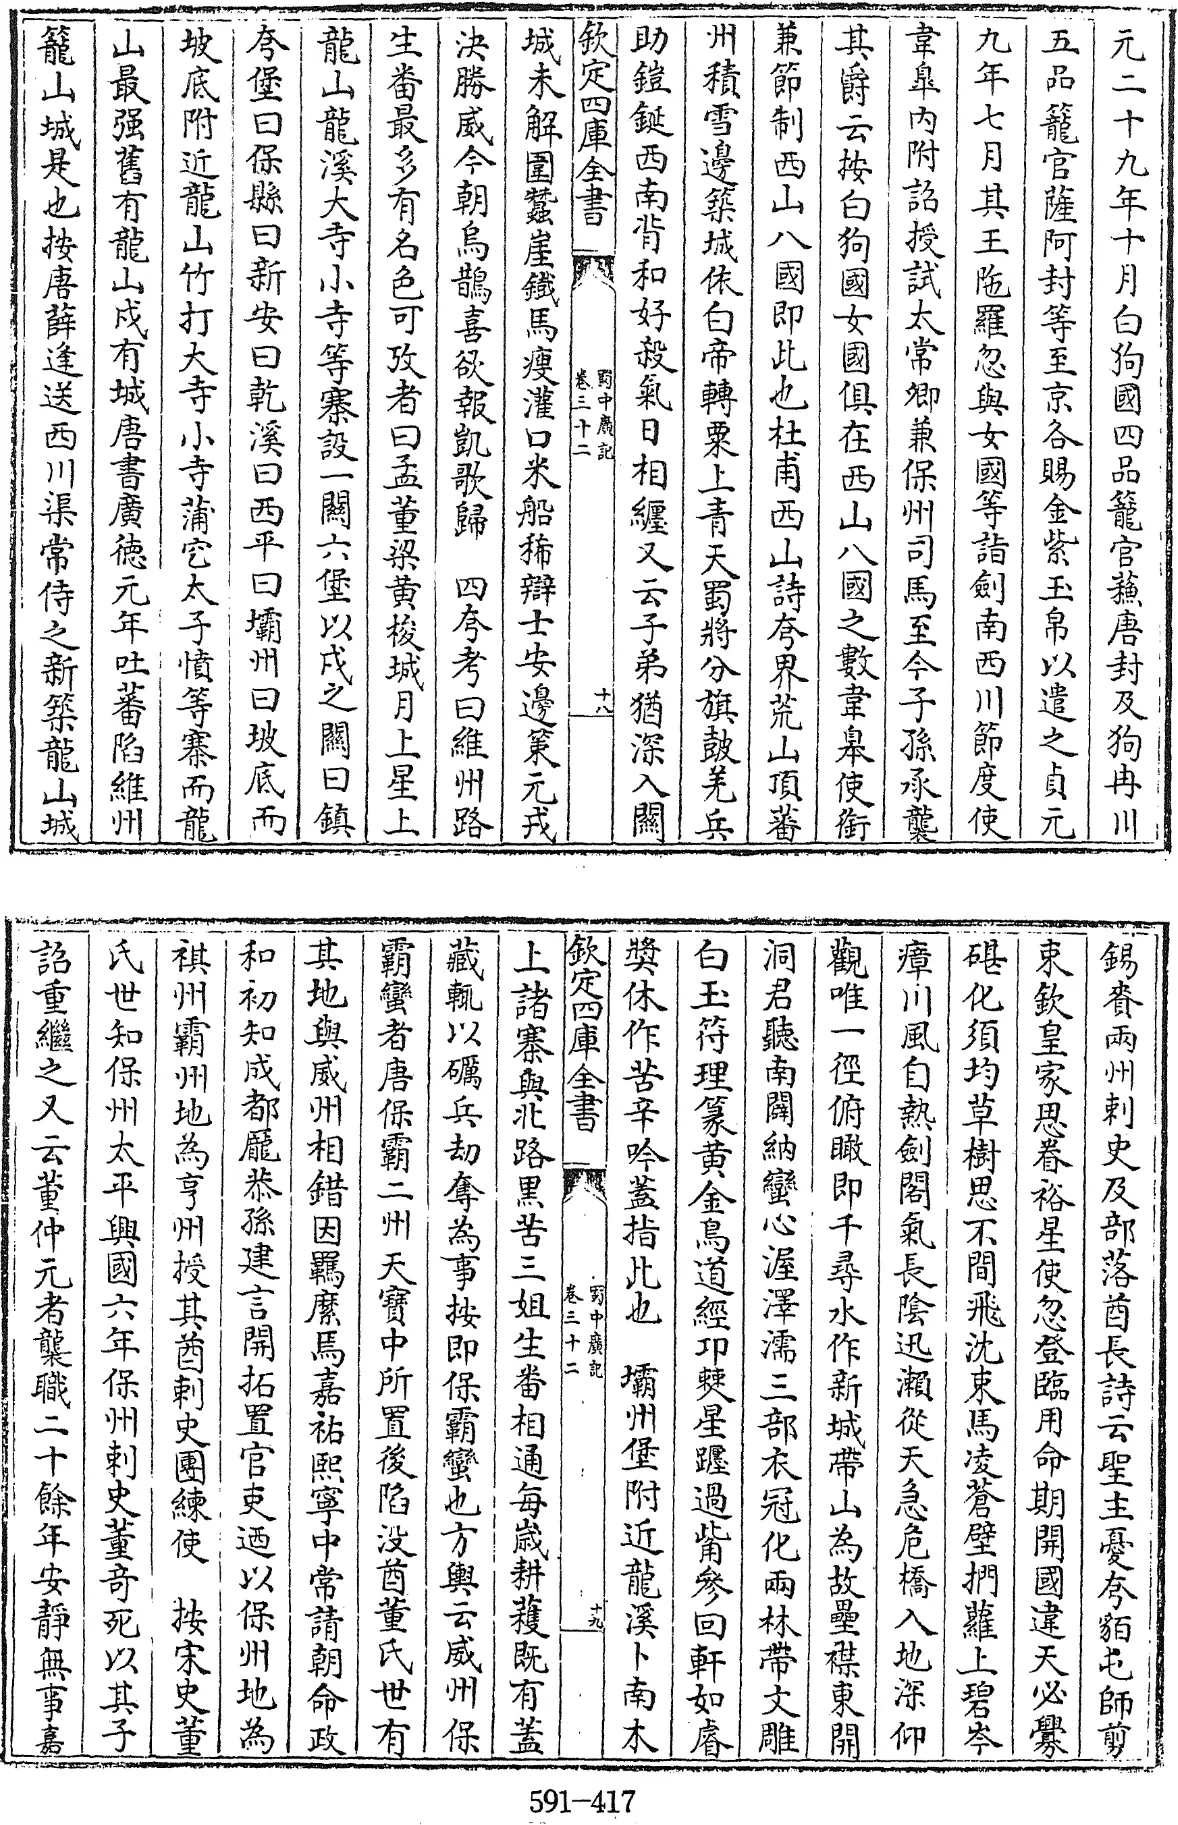 元二十九年十月白狗國四品籠官蘓唐封及狗冉川
五品籠官薩阿封等至京各賜金紫玉帛以遣之貞元
九年七月其王陁羅忽與女國等詣劍南西川節度使
韋臯内附詔授試太常卿兼保州司馬至今子孫承襲
其爵云按白狗國女國俱在西山八國之數韋臯使銜
兼節制西山八國即此也杜甫西山詩夸界荒山頂蕃
州積雪邊築城依白帝轉粟上青天蜀將分旗鼓羌兵
助鎧鋋西南背和好殺氣日相纒又云子弟猶深入關
欽定四庫全書
蜀中廣記
卷三十二
十八
城未解圍蠶崖鐡馬瘦灌口米船稀辯士安邊策元戎
決勝威今朝烏鵲喜欲報凱歌歸 四夸考曰維州路
生番最多有名色可攷者曰孟董梁黄梭城月上星上
龍山龍溪大寺小寺等寨設一關六堡以戍之關曰鎮
夸堡曰保縣曰新安曰乾溪曰西平曰壩州曰坡底而
坡底附近龍山竹打大寺小寺蒲它太子憤等寨而龍
山最强舊有龍山戍有城唐書廣徳元年吐蕃陷維州
籠山城是也按唐薛逢送西川渠常侍之新築龍山城
錫賚兩州刺史及部落酋長詩云聖主憂夸貊屯師剪
束欽皇家思眷裕星使忽登臨用命期開國違天必釁
碪化須均草樹思不間飛沈束馬凌蒼壁捫蘿上碧岑
瘴川風自熱劍閣氣長陰迅瀨從天急危橋入地深仰
觀唯一徑俯瞰即千尋水作新城帶山為故壘襟東開
洞君聽南闢納蠻心渥澤濡三部衣冠化兩林帶文雕
白玉符理篆黄金鳥道經卭僰星躔過觜參回軒如睿
奬休作苦辛吟蓋指此也 壩州堡附近龍溪卜南木
欽定四庫全書
蜀中廣記
卷三十二
十九
上諸寨與北路黒苦三姐生番相通每歳耕穫既有蓋
藏輒以礪兵刧奪為事按即保霸蠻也方輿云威州保
霸蠻者唐保霸二州天寶中所置後陷没酋董氏世有
其地與威州相錯因羈縻焉嘉祐熙寧中常請朝命政
和初知成都龎恭孫建言開拓置官吏廼以保州地為
祺州霸州地為亨州授其酋刺史團練使 按宋史董
氏世知保州太平興國六年保州刺史董竒死以其子
詔重繼之又云董仲元者襲職二十餘年安靜無事嘉
591-417